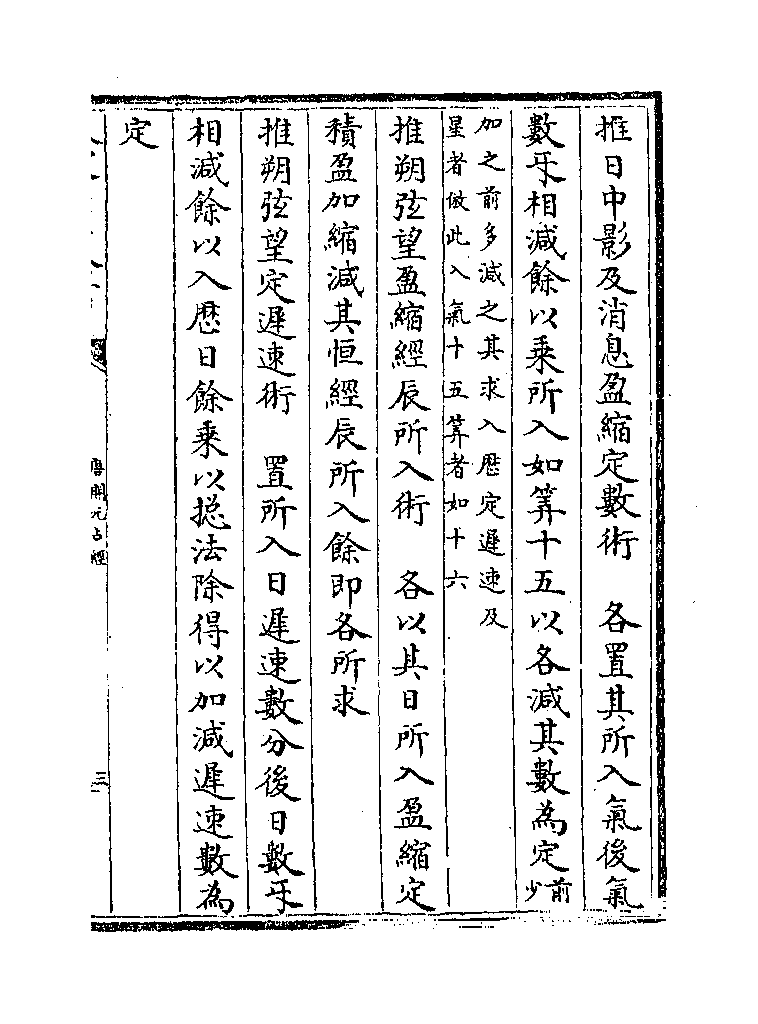 推日中影及消息盈縮定數術　各置其所入氣後氣
數㸦相減餘以乘所入如筭十五以各減其數為定前少
加之前多減之其求入厯定遲速及
星者倣此入氣十五筭者如十六
推朔弦望盈縮經辰所入術　各以其日所入盈縮定
積盈加縮減其恒經辰所入餘即各所求
推朔弦望定遲速術　置所入日遲速數分後日數㸦
相減餘以入厯日餘乘以捴法除得以加減遲速數為
定
唐開元占經
三